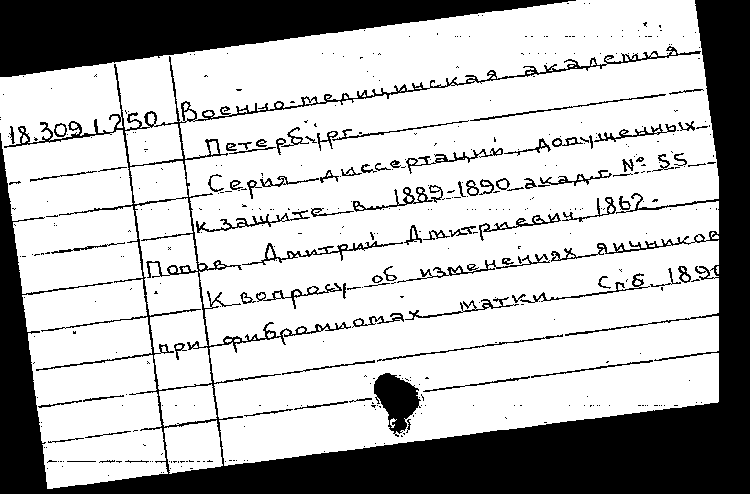 18.309.1.250. Военно-медицинская академия
Петербург.
Серия диссертаций, допущенных
к защите в 1889-1890 акад.г. № 55
Попов, Дмитрий Дмитриевич, 1862-
К вопросу об изменениях яичников
при фибромиомах матки. Спб., 1890